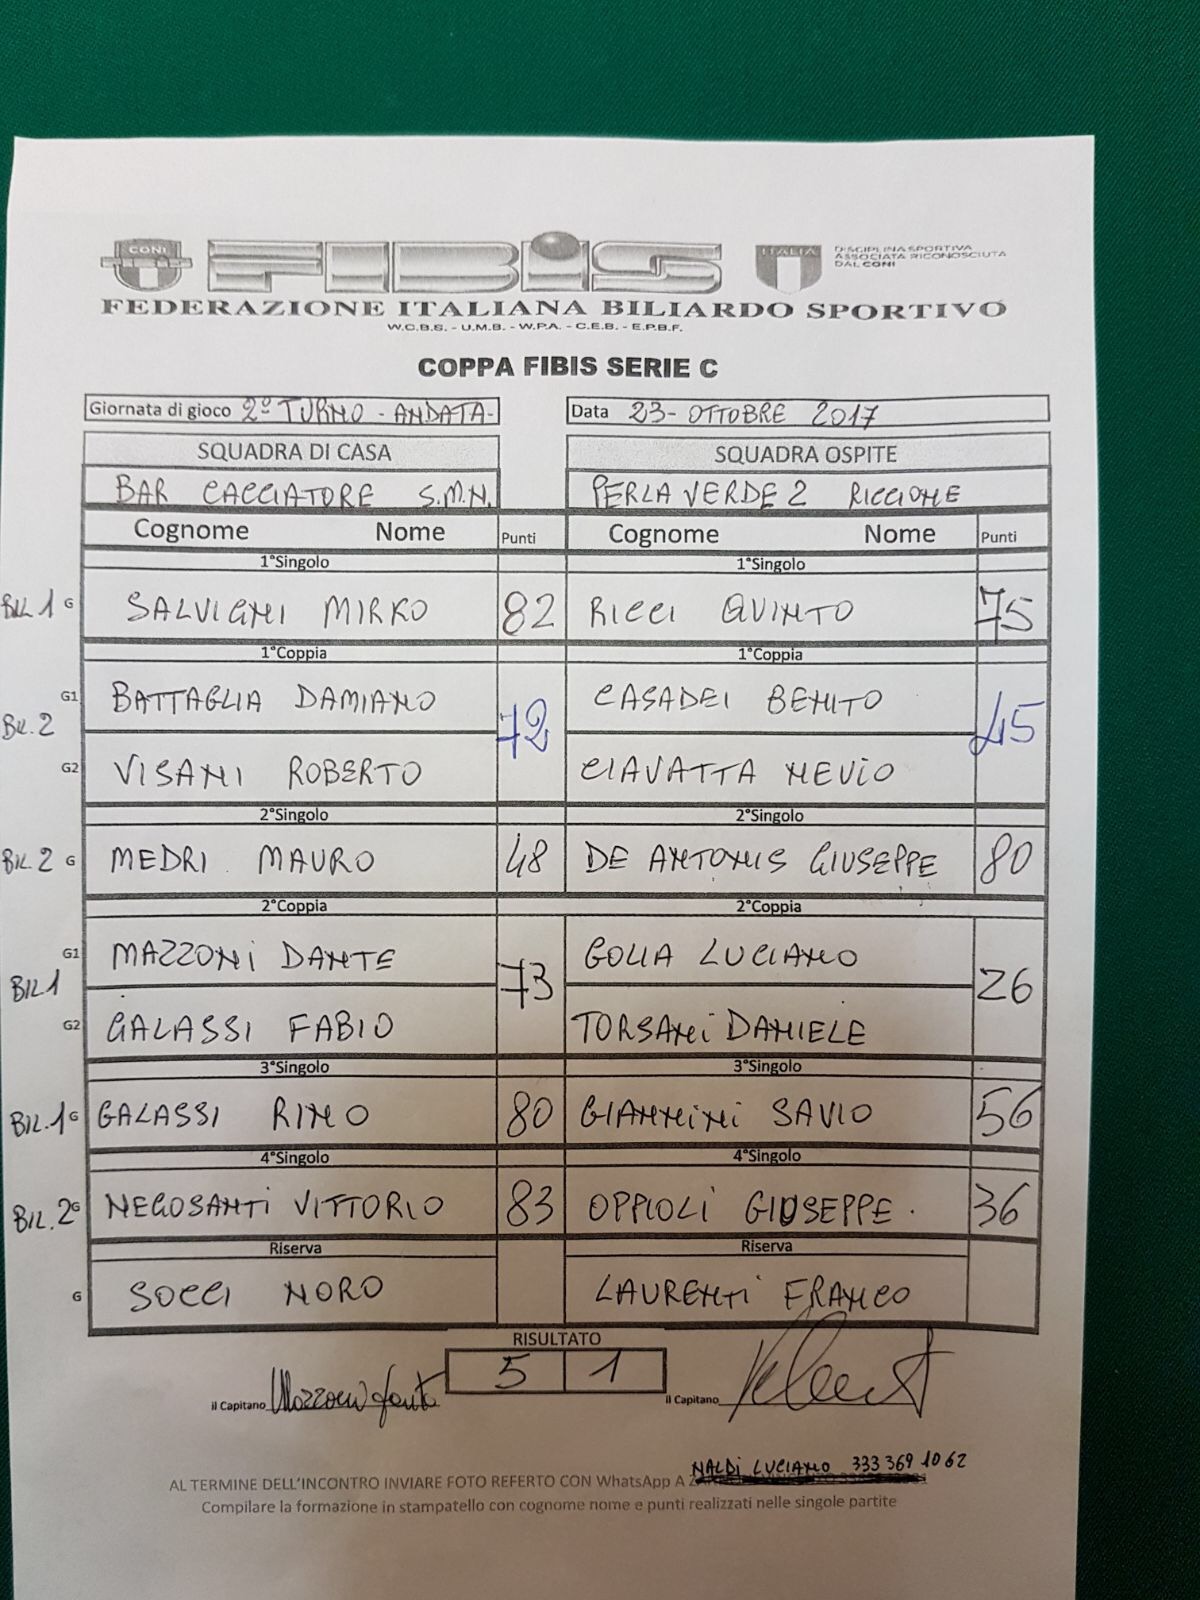 CONI FIBIS ITALIA DISCIPLINA SPORTIVA
ASSOCIATA RICONOSCIUTA
DAL CONI
FEDERAZIONE ITALIANA BILIARDO SPORTIVO
W.C.B.S. - U.M.B. - W.P.A. - C.E.B. - E.P.B.F.
COPPA FIBIS SERIE C
Giornata di gioco 2° TURNO - ANDATA - Data 23 - OTTOBRE 2017
SQUADRA DI CASA SQUADRA OSPITE
BAR CACCIATORE S.M.N. PERLA VERDE 2 RICCIONE
Cognome Nome Punti Cognome Nome Punti
1°Singolo 1°Singolo
BIL 1 G SALVIGNI MIRKO 82 RICCI QUINTO 75
1°Coppia 1°Coppia
G1 BATTAGLIA DAMIANO CASADEI BENITO
BIL.2 72 45
G2 VISANI ROBERTO CIAVATTA NEVIO
2°Singolo 2°Singolo
BIL.2 G MEDRI MAURO 48 DE ANTONIS GIUSEPPE 80
2°Coppia 2°Coppia
G1 MAZZONI DANTE GOLIA LUCIANO
BIL1 73 26
G2 GALASSI FABIO TORSANI DANIELE
3°Singolo 3°Singolo
BIL.1 G GALASSI RINO 80 GIANNINI SAVIO 56
4°Singolo 4°Singolo
BIL.2 G NEGOSANTI VITTORIO 83 OPPIOLI GIUSEPPE. 36
Riserva Riserva
G SOCCI NORO LAURENTI FRANCO
RISULTATO
5 1
il Capitano Mazzoni Dante il Capitano
NALDI LUCIANO 333 369 1062
AL TERMINE DELL'INCONTRO INVIARE FOTO REFERTO CON WhatsApp A
Compilare la formazione in stampatello con cognome nome e punti realizzati nelle singole partite